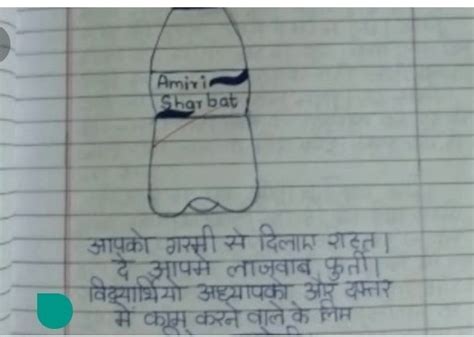 Amiri
Sharbat
आपको गरमी से दिलाए राहत।
दे आपमे लाजवाब फुर्ती।
विद्यार्थियो अध्यापको और दफ्तर
में काम करने वाले के लिए